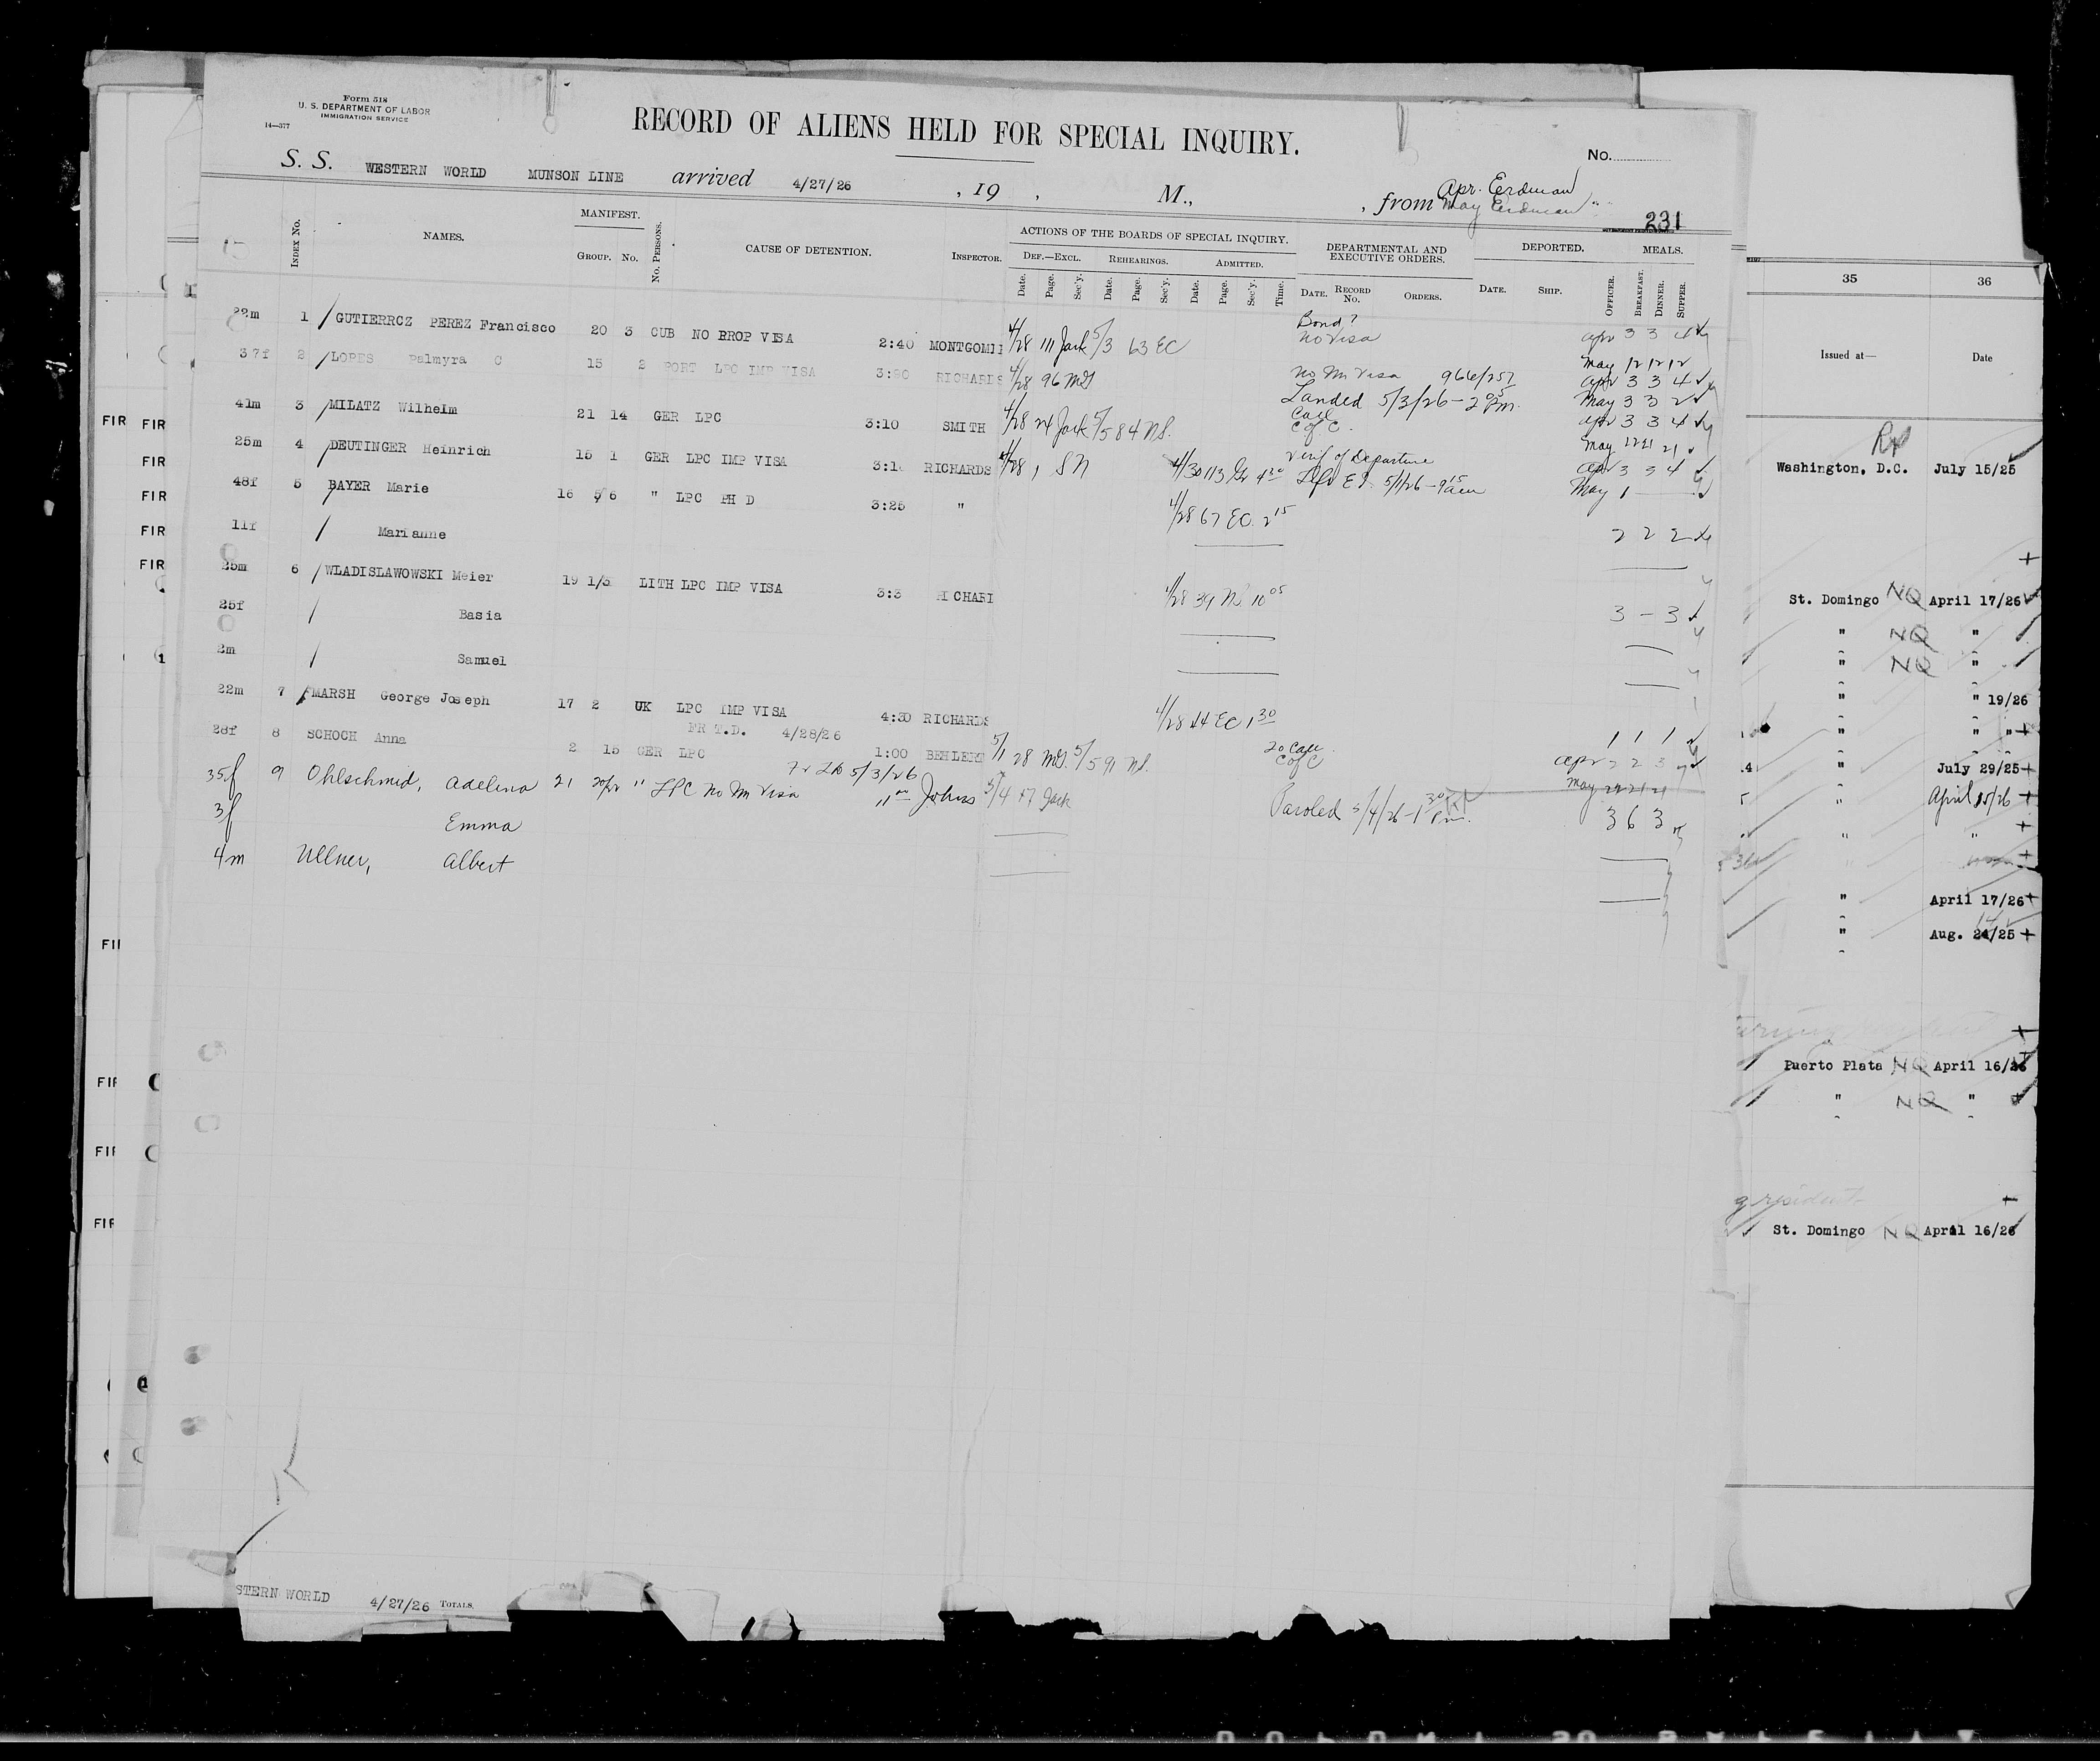 Form 518
U. S. DEPARTMENT OF LABOR
IMMIGRATION SERVICE
14—377
RECORD OF ALIENS HELD FOR SPECIAL INQUIRY.
No.
S. S. WESTERN WORLD MUNSON LINE arrived 4/27/26 , 19 , M., , from Apr. Erdman
May Erdman
231
Index No. NAMES. MANIFEST. No. Persons. CAUSE OF DETENTION. INSPECTOR. ACTIONS OF THE BOARDS OF SPECIAL INQUIRY. DEPARTMENTAL AND EXECUTIVE ORDERS. DEPORTED. MEALS.
GROUP. No. DEF.—EXCL. REHEARINGS. ADMITTED.
Date. Page. Sec'y. Date. Page. Sec'y. Date. Page. Sec'y. Time. DATE. RECORD No. ORDERS. DATE. SHIP. OFFICER. BREAKFAST. DINNER. SUPPER.
22m 1 GUTIERRCZ PEREZ Francisco 20 3 CUB NO BROP VISA 2:40 MONTGOMI 4/28 111 Jack 5/3 63 EC Bond? No Visa Apr 3 3 4
May 12 12 12
37f 2 LOPES Palmyra C 15 2 PORT LPC IMP VISA RICHARDS 4/28 96 MG No Im Visa 966/257 Apr 3 3 4
Landed 5/3/26 - 2 05 Pm. May 3 3 2
41m 3 MILATZ Wilhelm 21 14 GER LPC 3:10 SMITH 4/28 24 Jack 5/5 84 NS. Call C of C. Apr 3 3 4
May 22 21 21
25m 4 DEUTINGER Heinrich 15 1 GER LPC IMP VISA RICHARDS 4/28 1 SN 4/30 113 Gr 4 30 Verif of Departure Apr 3 3 4
5/1/26 - 9 15 am May 1
48f 5 BAYER Marie 16 5 6 " LPC PH D 3:25 " 4/28 67 EC. 2 15
11f Marianne 2 2 2
25m 6 WLADISLAWOWSKI Meier 19 1/3 LITH LPC IMP VISA 3:3 RICHARD 4/28 39 NS 10 05
25f Basia 3 - 3
2m Samuel
22m 7 MARSH George Joseph 17 2 UK LPC IMP VISA 4:30 RICHARDS 4/28 44 EC 1 30
FR T.D. 4/28/26 1 1 1
28f 8 SCHOCH Anna 2 15 GER LPC 1:00 BEHLERT 5/1 28 MG. 5/5 91 NS. Call C of C Apr 2 2 3
5/3/26 May 22 21 21
35f 9 Ohlschmid, Adelina 21 " LPC No Im Visa 11 00 Johns 5/4 47 Jack Paroled 5/4/26 - 1 30 Pm. 3 6 3
3f Emma
4m Ullner, Albert
STERN WORLD 4/27/26 TOTALS.
35 36
Issued at— Date
Washington, D.C. July 15/25
St. Domingo NQ April 17/26
" NQ "
" NQ "
" " 19/26
" "
" July 29/25
" April 15/26
" "
" April 17/26
" Aug. 24/25
Puerto Plata NQ April 16/26
" NQ "
g resident
St. Domingo NQ April 16/26
FIR FIR
FIR
FIR
FIR
FIR
FII
FIF
FIF
FIF